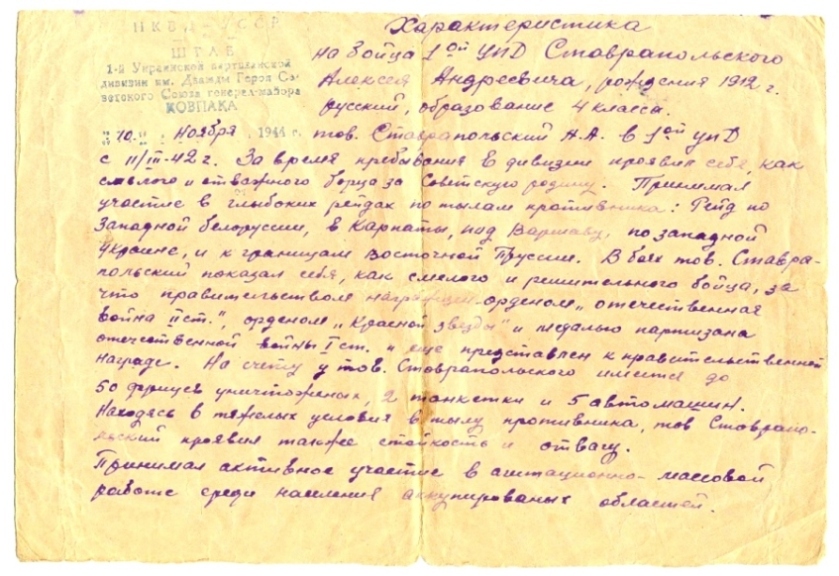 НКВД - УССР
ШТАБ
1-й Украинской партизанской
дивизии им. Дважды Героя Со-
ветского Союза генерал-майора
КОВПАКА
"10" Ноября 1944 г.
Характеристика
на бойца 1ой УПД Ставрапольского
Алексея Андреевича, рождения 1912 г.
русский, образование 4 класса.
тов. Ставрапольский А.А. в 1ой УПД
с 11/III-42 г. За время пребывания в дивизии проявил себя, как
смелого и отважного борца за Советскую родину. Принимал
участие в глубоких рейдах по тылам противника: Рейд по
Западной белоруссии, в Карпаты, под Варшаву, по западной
Украине, и к границам Восточной Пруссии. В боях тов. Ставра-
польский показал себя, как смелого и решительного бойца, за
что правительством награжден орденом „отечественная
война II ст.", орденом „Красной звезды" и медалью партизана
отечественной войны I ст. и еще представлен к правительственной
награде. На счету у тов. Ставропольского имеется до
50 фрицев уничтоженых, 2 танкетки и 5 автомашин.
Находясь в тяжелых условия в тылу противника, тов Ставрапо-
льский проявил также стойкость и отвагу.
Принимал активное участие в агитационно-массовой
работе среди населения аккупированых областей.